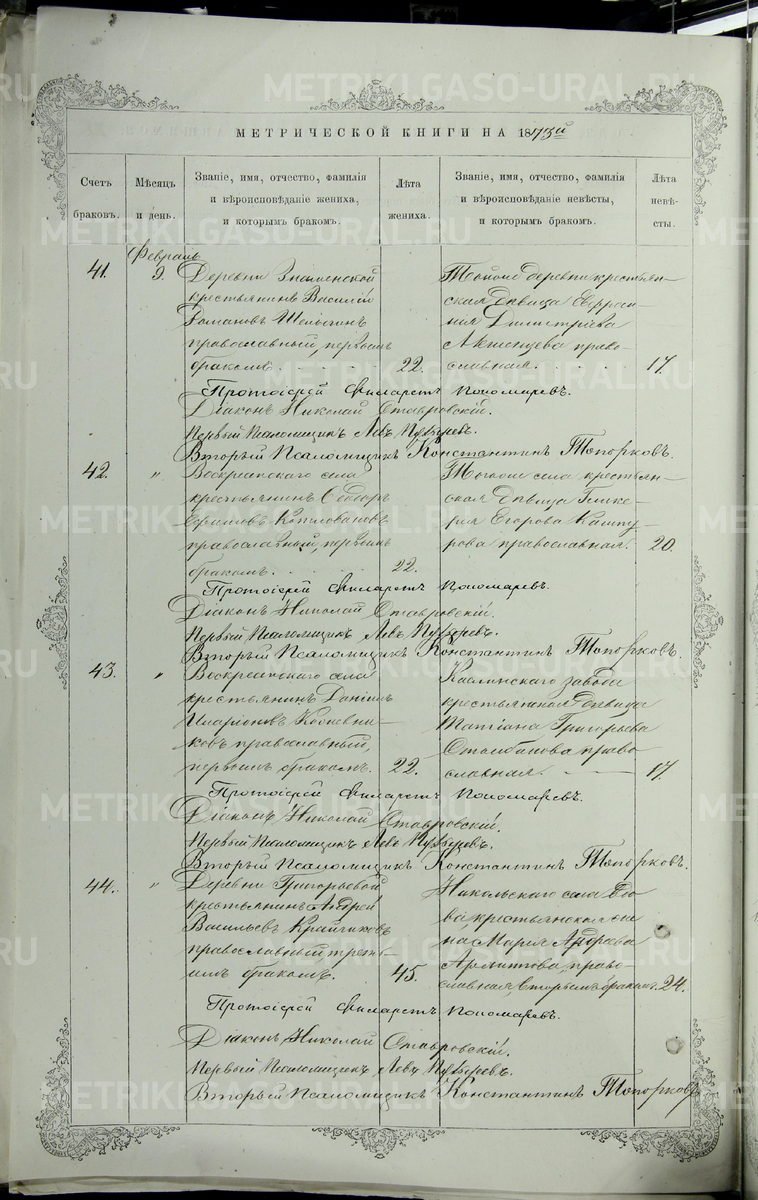 МЕТРИЧЕСКОЙ КНИГИ НА 1873й
Счетъ браковъ.
Мѣсяцъ и день.
Званіе, имя, отчество, фамилія и вѣроисповѣданіе жениха, и которымъ бракомъ.
Лѣта жениха.
Званіе, имя, отчество, фамилія и вѣроисповѣданіе невѣсты, и которымъ бракомъ.
Лѣта невѣсты.
Февраль
41. 9. Деревни Знаменской
крестьянинъ Василій
Романовъ
православный, первымъ
бракомъ. 22.
Тойже деревни крестьян-
ская дѣвица
Димитріева
право-
славная. 17.
Протоіерей Филаретъ Пономаревъ.
Діаконъ Николай Ставровскій.
Первый Псаломщикъ Левъ
Вторый Псаломщикъ Константинъ Топорковъ.
42. " Воскресенскаго села
крестьянинъ Ѳедоръ
православный, первымъ
бракомъ. 22.
Тогоже села крестьян-
ская дѣвица Глике-
рія Егорова
православная. 20.
Протоіерей Филаретъ Пономаревъ.
Діаконъ Николай Ставровскій.
Первый Псаломщикъ Левъ
Вторый Псаломщикъ Константинъ Топорковъ.
43. " Воскресенскаго села
крестьянинъ Даніилъ
Иларіоновъ
православный,
первымъ бракомъ. 22.
Каслинскаго завода
крестьянская дѣвица
Татіана Григорьева
право-
славная. 17.
Протоіерей Филаретъ Пономаревъ.
Діаконъ Николай Ставровскій.
Первый Псаломщикъ Левъ
Вторый Псаломщикъ Константинъ Топорковъ.
44. " Деревни Григорьевой
крестьянинъ Андрей
Васильевъ
православный, треть-
имъ бракомъ. 45.
Никольскаго села вдо-
ва крестьянская
Марія
право-
славная, вторымъ бракомъ. 24.
Протоіерей Филаретъ Пономаревъ.
Діаконъ Николай Ставровскій.
Первый Псаломщикъ Левъ
Вторый Псаломщикъ Константинъ Топорковъ
METRIKI.GASO-URAL.RU